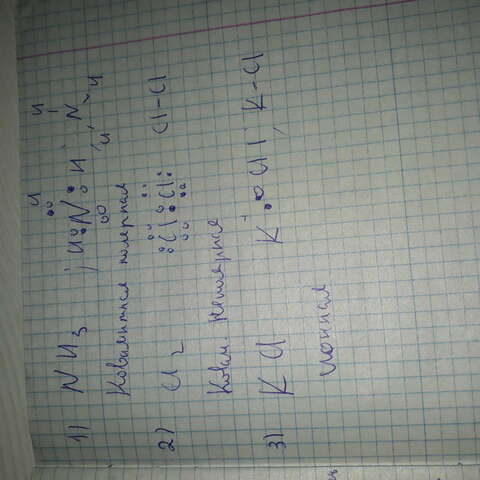 H H
1) NH3 ; H N H ; N
H H
Ковалентная полярная
2) Cl2 Cl Cl Cl-Cl
Ковал. неполярная
3) KCl K Cl ; K-Cl
ионная